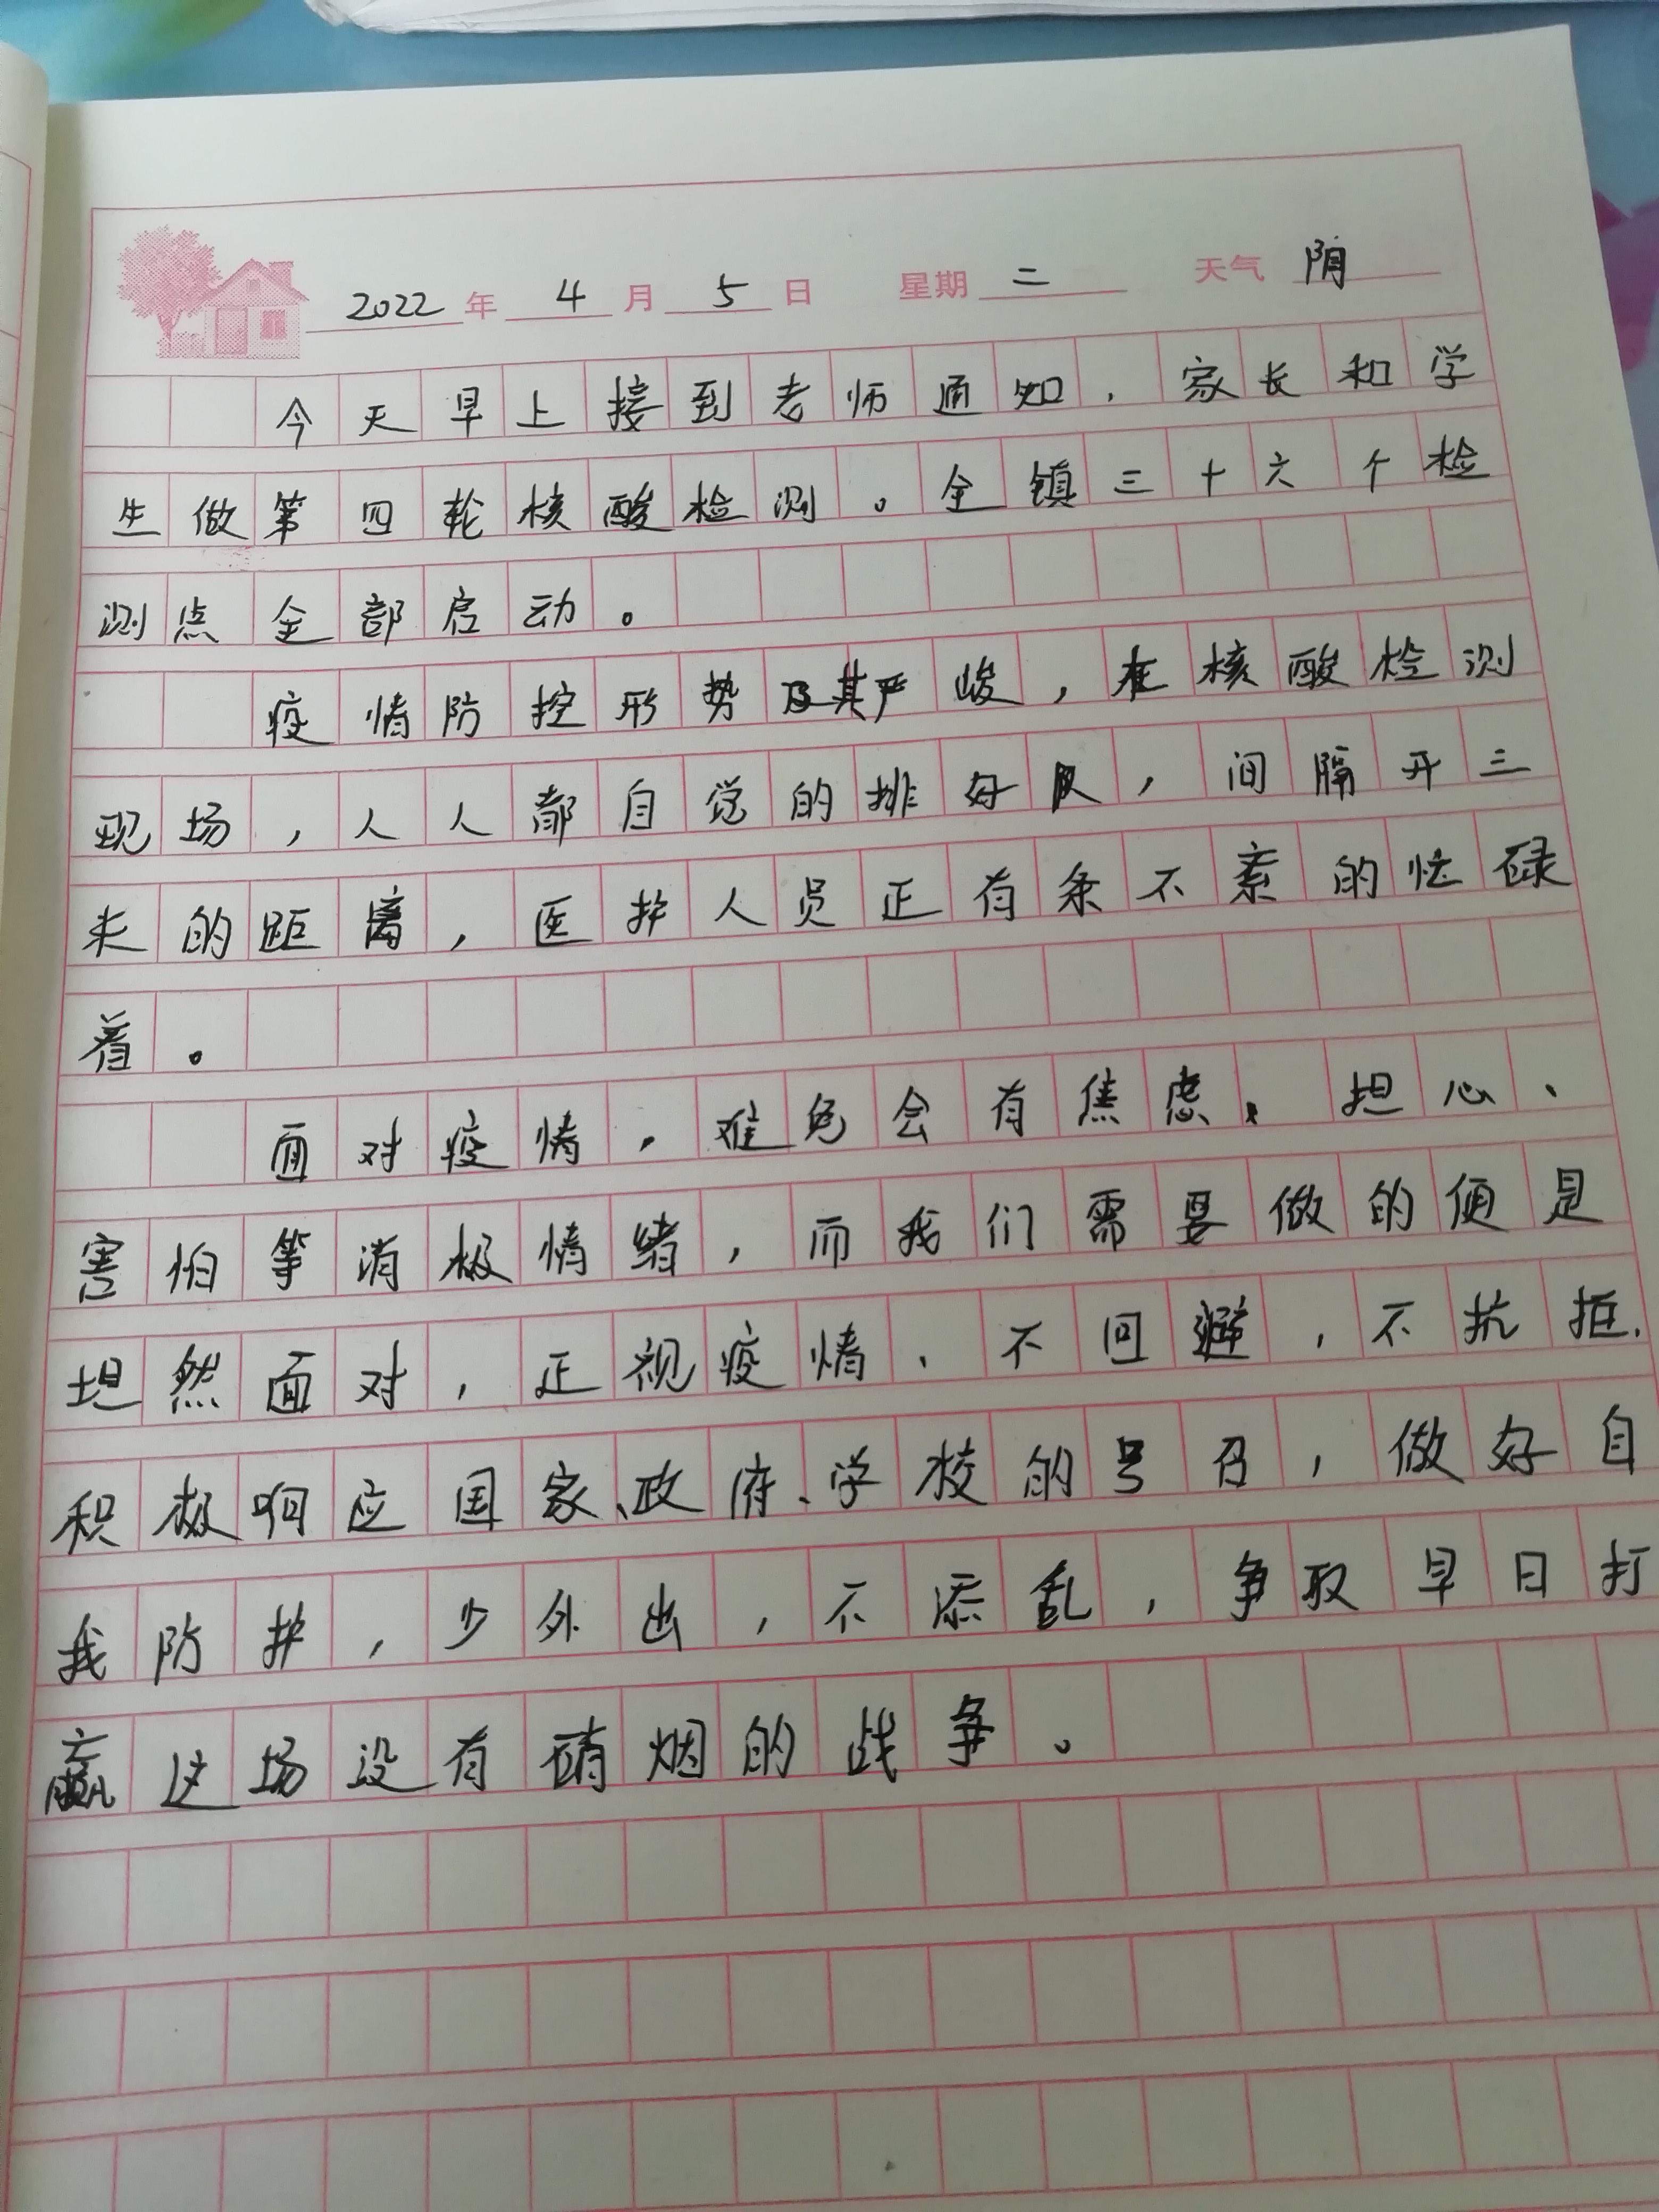 2022 年 4 月 5 日 星期 二 天气 阴
今天早上接到老师通知，家长和学
生做第四轮核酸检测。全镇三十六个检
测点全部启动。
疫情防控形势及其严峻，在核酸检测
现场，人人都自觉的排好队，间隔开三
米的距离，医护人员正有条不紊的忙碌
着。
面对疫情，难免会有焦虑、担心、
害怕等消极情绪，而我们需要做的便是
坦然面对，正视疫情、不回避，不抗拒.
积极响应国家、政府、学校的号召，做好自
我防护，少外出，不添乱，争取早日打
赢这场没有硝烟的战争。